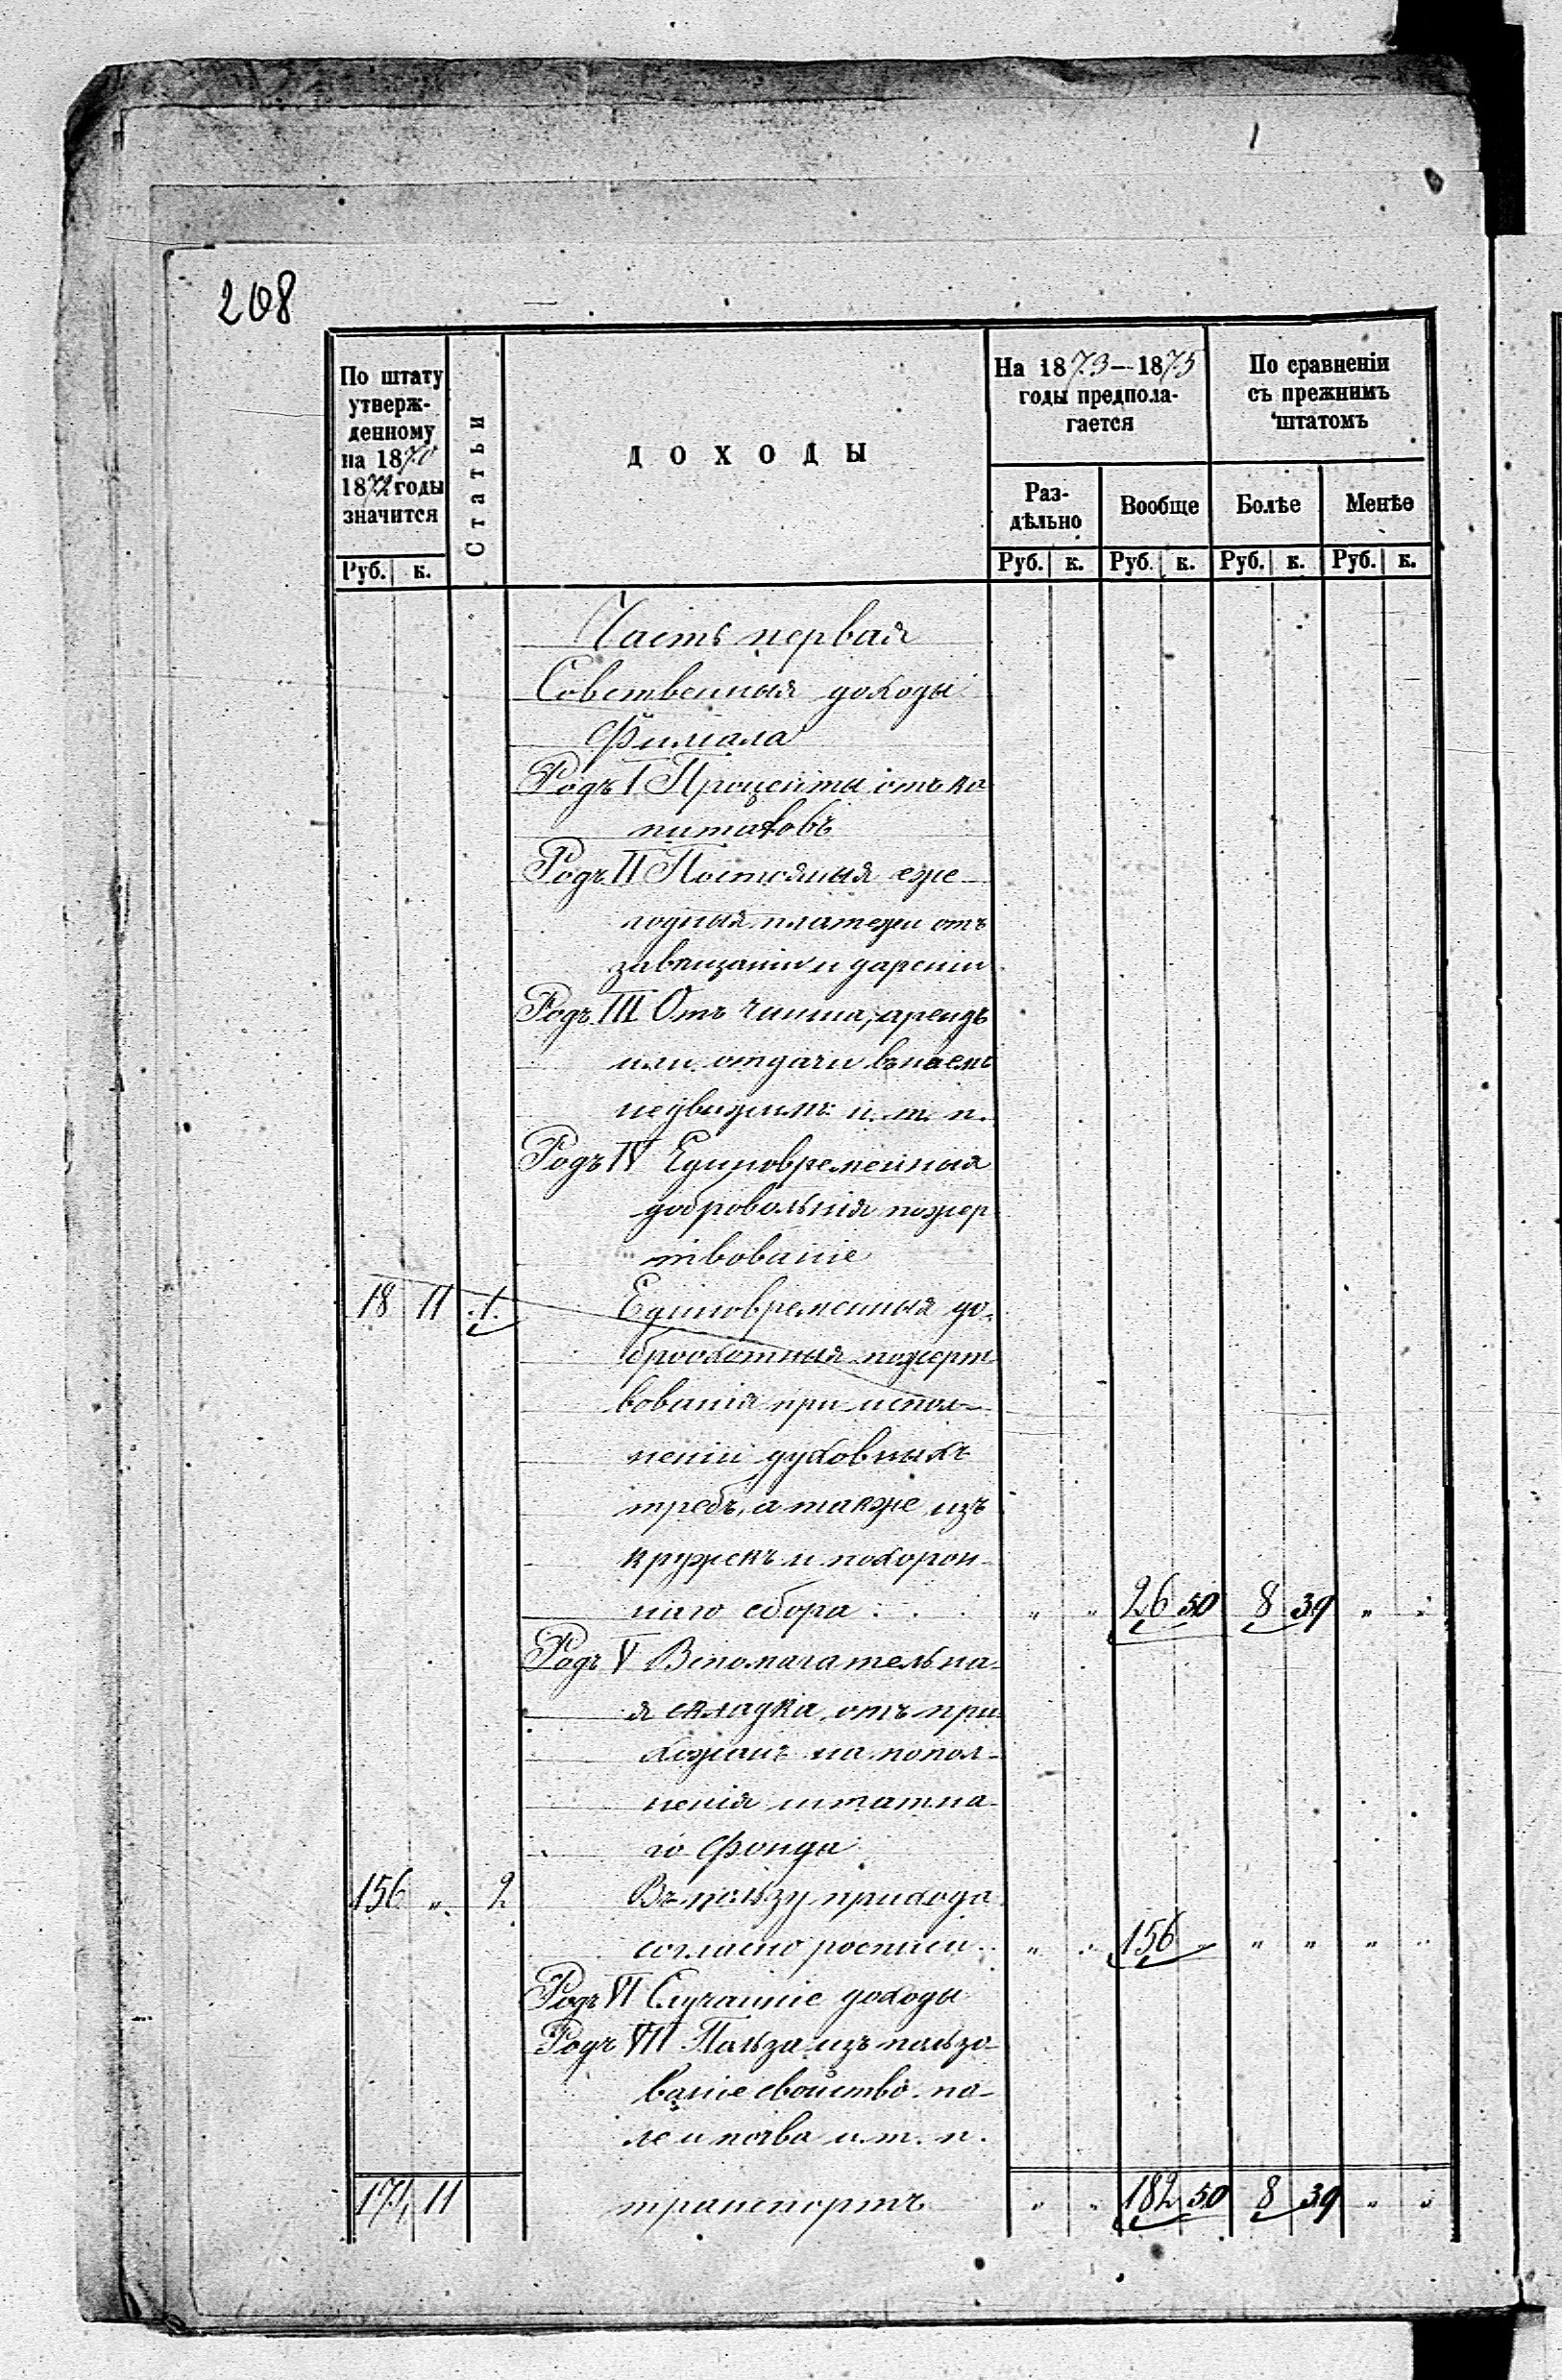 208
По штату
утверж-
денному
на 1870
1872 годы
значится
Статьи
ДОХОДЫ
На 1873–1875
годы предпола-
гается
По сравненіи
съ прежнимъ
штатомъ
Раз-
дѣльно
Вообще
Болѣе
Менѣе
Руб. к. Руб. к. Руб. к. Руб. к. Руб. к.
Часть первая
Собственныя доходы
Филіала
Родъ I Проценты отъ ка
питаловъ
Родъ II Постоянныя еже-
годныя платежи отъ
завѣщаніи и дареніи
Родъ III Отъ чинша, арендъ
или отдачи въ наемъ
недвижим: и. т. п.
Родъ IV Единовременныя
добровольнія пожер
твованіе
18 11 1. Единовременныя до-
броохотныя пожерт
вованія при испол-
неніи духовныхъ
требъ, а также изъ
кружекъ и похорон-
наго сбора . . . „ „ 26 50 8 39 „ „
Родъ V Вспомагательна-
я складка отъ при
хожанъ на попол-
ненія штатна-
го фонда
156 „ 2 Въ пользу прихода
согласно росписи . „ „ 156 „ „ „ „ „
Родъ VI Случайніе доходы
Родъ VII Польза изъ пользо-
ваніе свойство по-
ле и почва и. т. п.
174 11 транспортъ „ „ 182 50 8 39 „ „